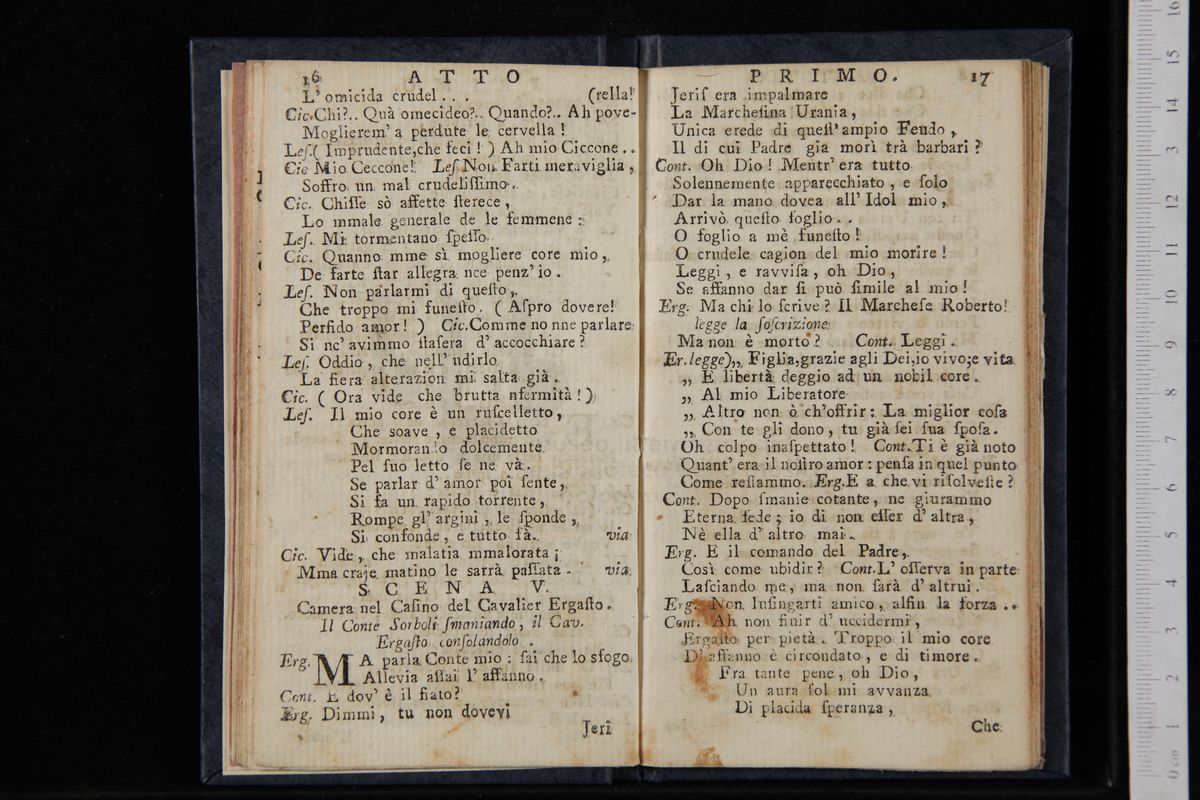 16 ATTO
L' omicida crudel . . . (rella!
Cic. Chi?.. Quà omecideo?.. Quando?.. Ah pove-
Moglierem' a perdute le cervella !
Leſ. ( Imprudente, che feci ! ) Ah mio Ciccone ..
Cic Mio Ceccone! Leſ. Non Farti meraviglia ,
Soffro un mal crudeliſſimo .
Cic. Chiſſe sò affette ſterece ,
Lo mmale generale de le femmene :
Leſ. Mi tormentano ſpeſſo .
Cic. Quanno mme sì mogliere core mio ,
De farte ſtar allegra nce penz' io .
Leſ. Non parlarmi di queſto ,
Che troppo mi funeſto . ( Aſpro dovere!
Perfido amor! ) Cic. Comme no nne parlare
Si nc' avimmo ſtaſera d' accocchiare ?
Leſ. Oddio , che nell' udirlo
La fiera alterazion mi salta già .
Cic. ( Ora vide che brutta nfermità ! )
Leſ. Il mio core è un ruſcelletto ,
Che soave , e placidetto
Mormorando dolcemente
Pel ſuo letto ſe ne và .
Se parlar d' amor poi ſente ,
Si fa un rapido torrente ,
Rompe gl' argini , le ſponde ,
Si confonde , e tutto fà . via
Cic. Vide , che malatia mmalorata ;
Mma craje matino le sarrà paſſata . via
SCENA V.
Camera nel Caſino del Cavalier Ergaſto .
Il Conte Sorboli ſmaniando , il Cav.
Ergaſto conſolandolo .
Erg. MA parla Conte mio : ſai che lo sfogo
Allevia aſſai l' affanno .
Cont. E dov' è il fiato?
Erg. Dimmi , tu non dovevi
Jeri
PRIMO. 17
Jeriſ era impalmare
La Marcheſina Urania ,
Unica erede di queſt' ampio Feudo ,
Il di cui Padre gia morì trà barbari ?
Cont. Oh Dio ! Mentr' era tutto
Solennemente apparecchiato , e ſolo
Dar la mano dovea all' Idol mio ,
Arrivò queſto foglio . .
O foglio a mè funeſto !
O crudele cagion del mio morire !
Leggi , e ravviſa , oh Dio ,
Se affanno dar ſi può ſimile al mio !
Erg. Ma chi lo ſcrive ? Il Marcheſe Roberto!
legge la ſoſcrizione
Ma non è morto ? Cont. Leggi .
Er. legge) ,, Figlia, grazie agli Dei, io vivo; e vita
,, E libertà deggio ad un nobil core .
,, Al mio Liberatore
,, Altro non ò ch' offrir : La miglior coſa
,, Con te gli dono , tu già ſei ſua ſpoſa .
Oh colpo inaſpettato ! Cont. Ti è già noto
Quant' era il noſtro amor : penſa in quel punto
Come reſtammo . Erg. E a che vi riſolveſte ?
Cont. Dopo ſmanie cotante , ne giurammo
Eterna fede ; io di non eſſer d' altra ,
Nè ella d' altro mai .
Erg. E il comando del Padre ,
Così come ubidir ? Cont. L' oſſerva in parte
Laſciando me , ma non ſarà d' altrui .
Erg. Non luſingarti amico , alfin la forza ..
Cont. Ah non finir d' uccidermi ,
Ergaſto per pietà . Troppo il mio core
D' affanno è circondato , e di timore .
Fra tante pene , oh Dio ,
Un aura ſol mi avvanza
Di placida ſperanza ,
Che